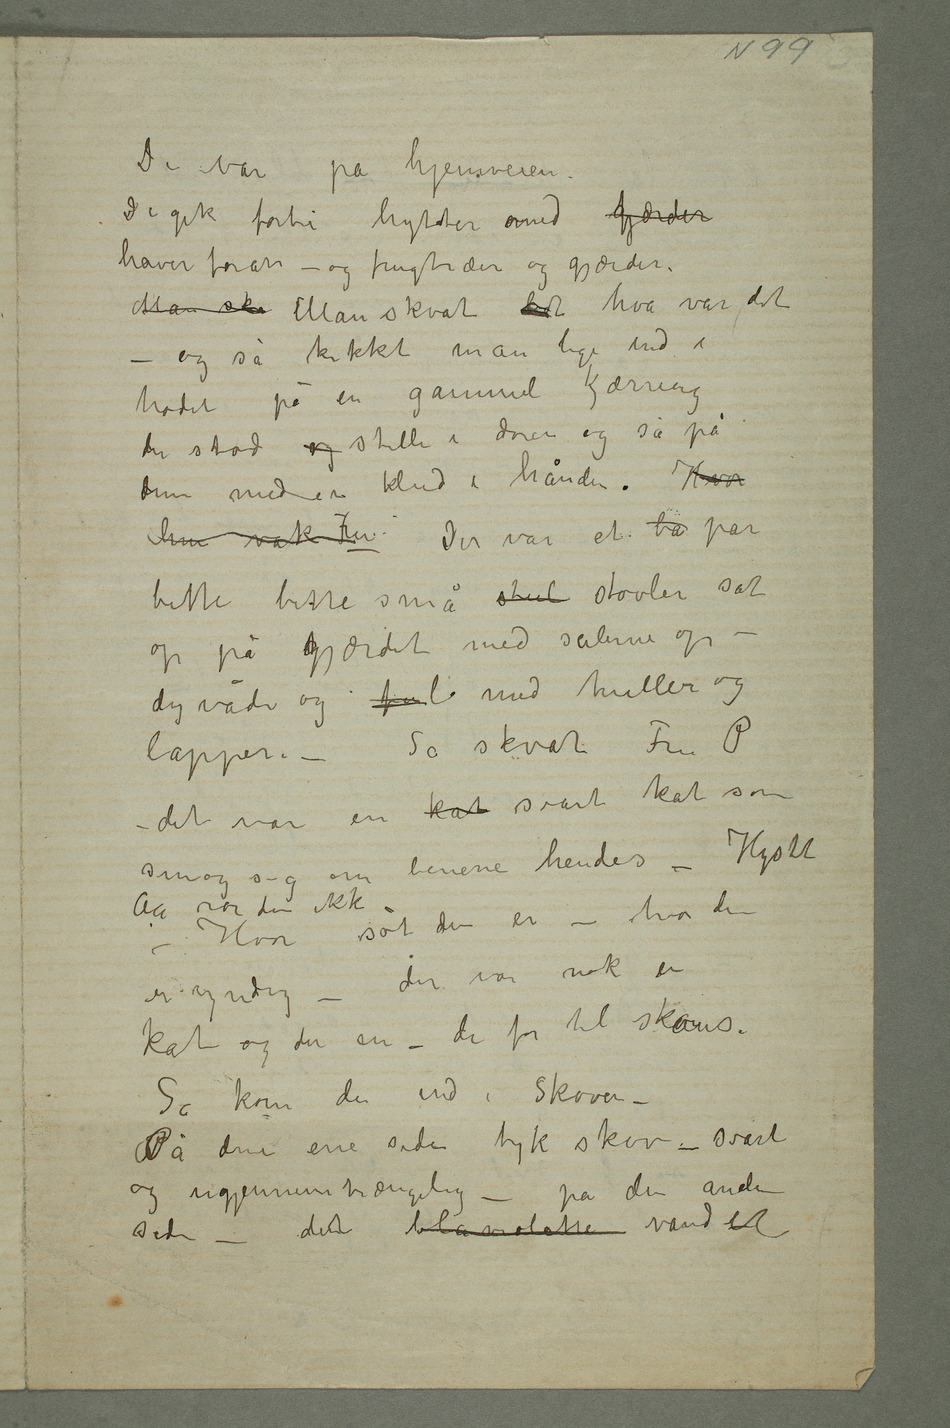 N 99
De var på hjemveien.
De gik forbi hytter med gjærder
haver foran – og frugtræer og gjærder.
Man ska Man skvat lidt hva var det
– og så kikket man lige ind i
hodet på en gammel kjærring
der stod og stille i døren og så på
dem med en klud i hånden. Hvor
hun vak Fru Der var et bå par
bitte bitte små støvler sat
op på gjærdet med sålerne op –
dyvåde og ful med huller og
lapper. – Så skvat Fru P
– det var en kat svart kat som
smøg sig om benene hendes – Hystt
Aa rør den ikke
– Hvor søt den er – hvor den
er yndig – der var nok en
kat og der en – de for til skovs.
Så kom de ind i Skoven –
På den ene siden tyk skov – svart
og ugjennemtrængelig – på den anden
side – det blaviolette vandet